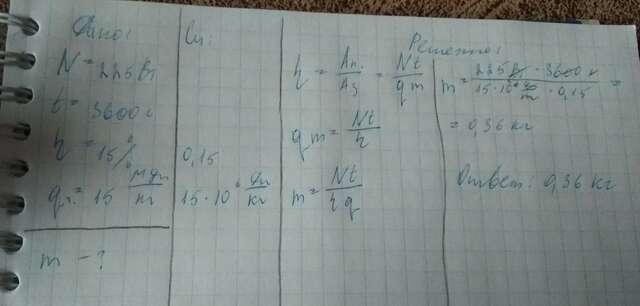 Дано:
N = 225 Вт
t = 3600 с
η = 15%
q т. = 15 МДж/кг
m - ?
Си:
0,15
15·10⁶ Дж/кг
Решение:
η = Aп./Aз = Nt/qm
qm = Nt/η
m = Nt/ηq
m = 225 Вт · 3600 с / 15·10⁶ Дж/кг · 0,15 =
= 0,36 кг
Ответ: 0,36 кг